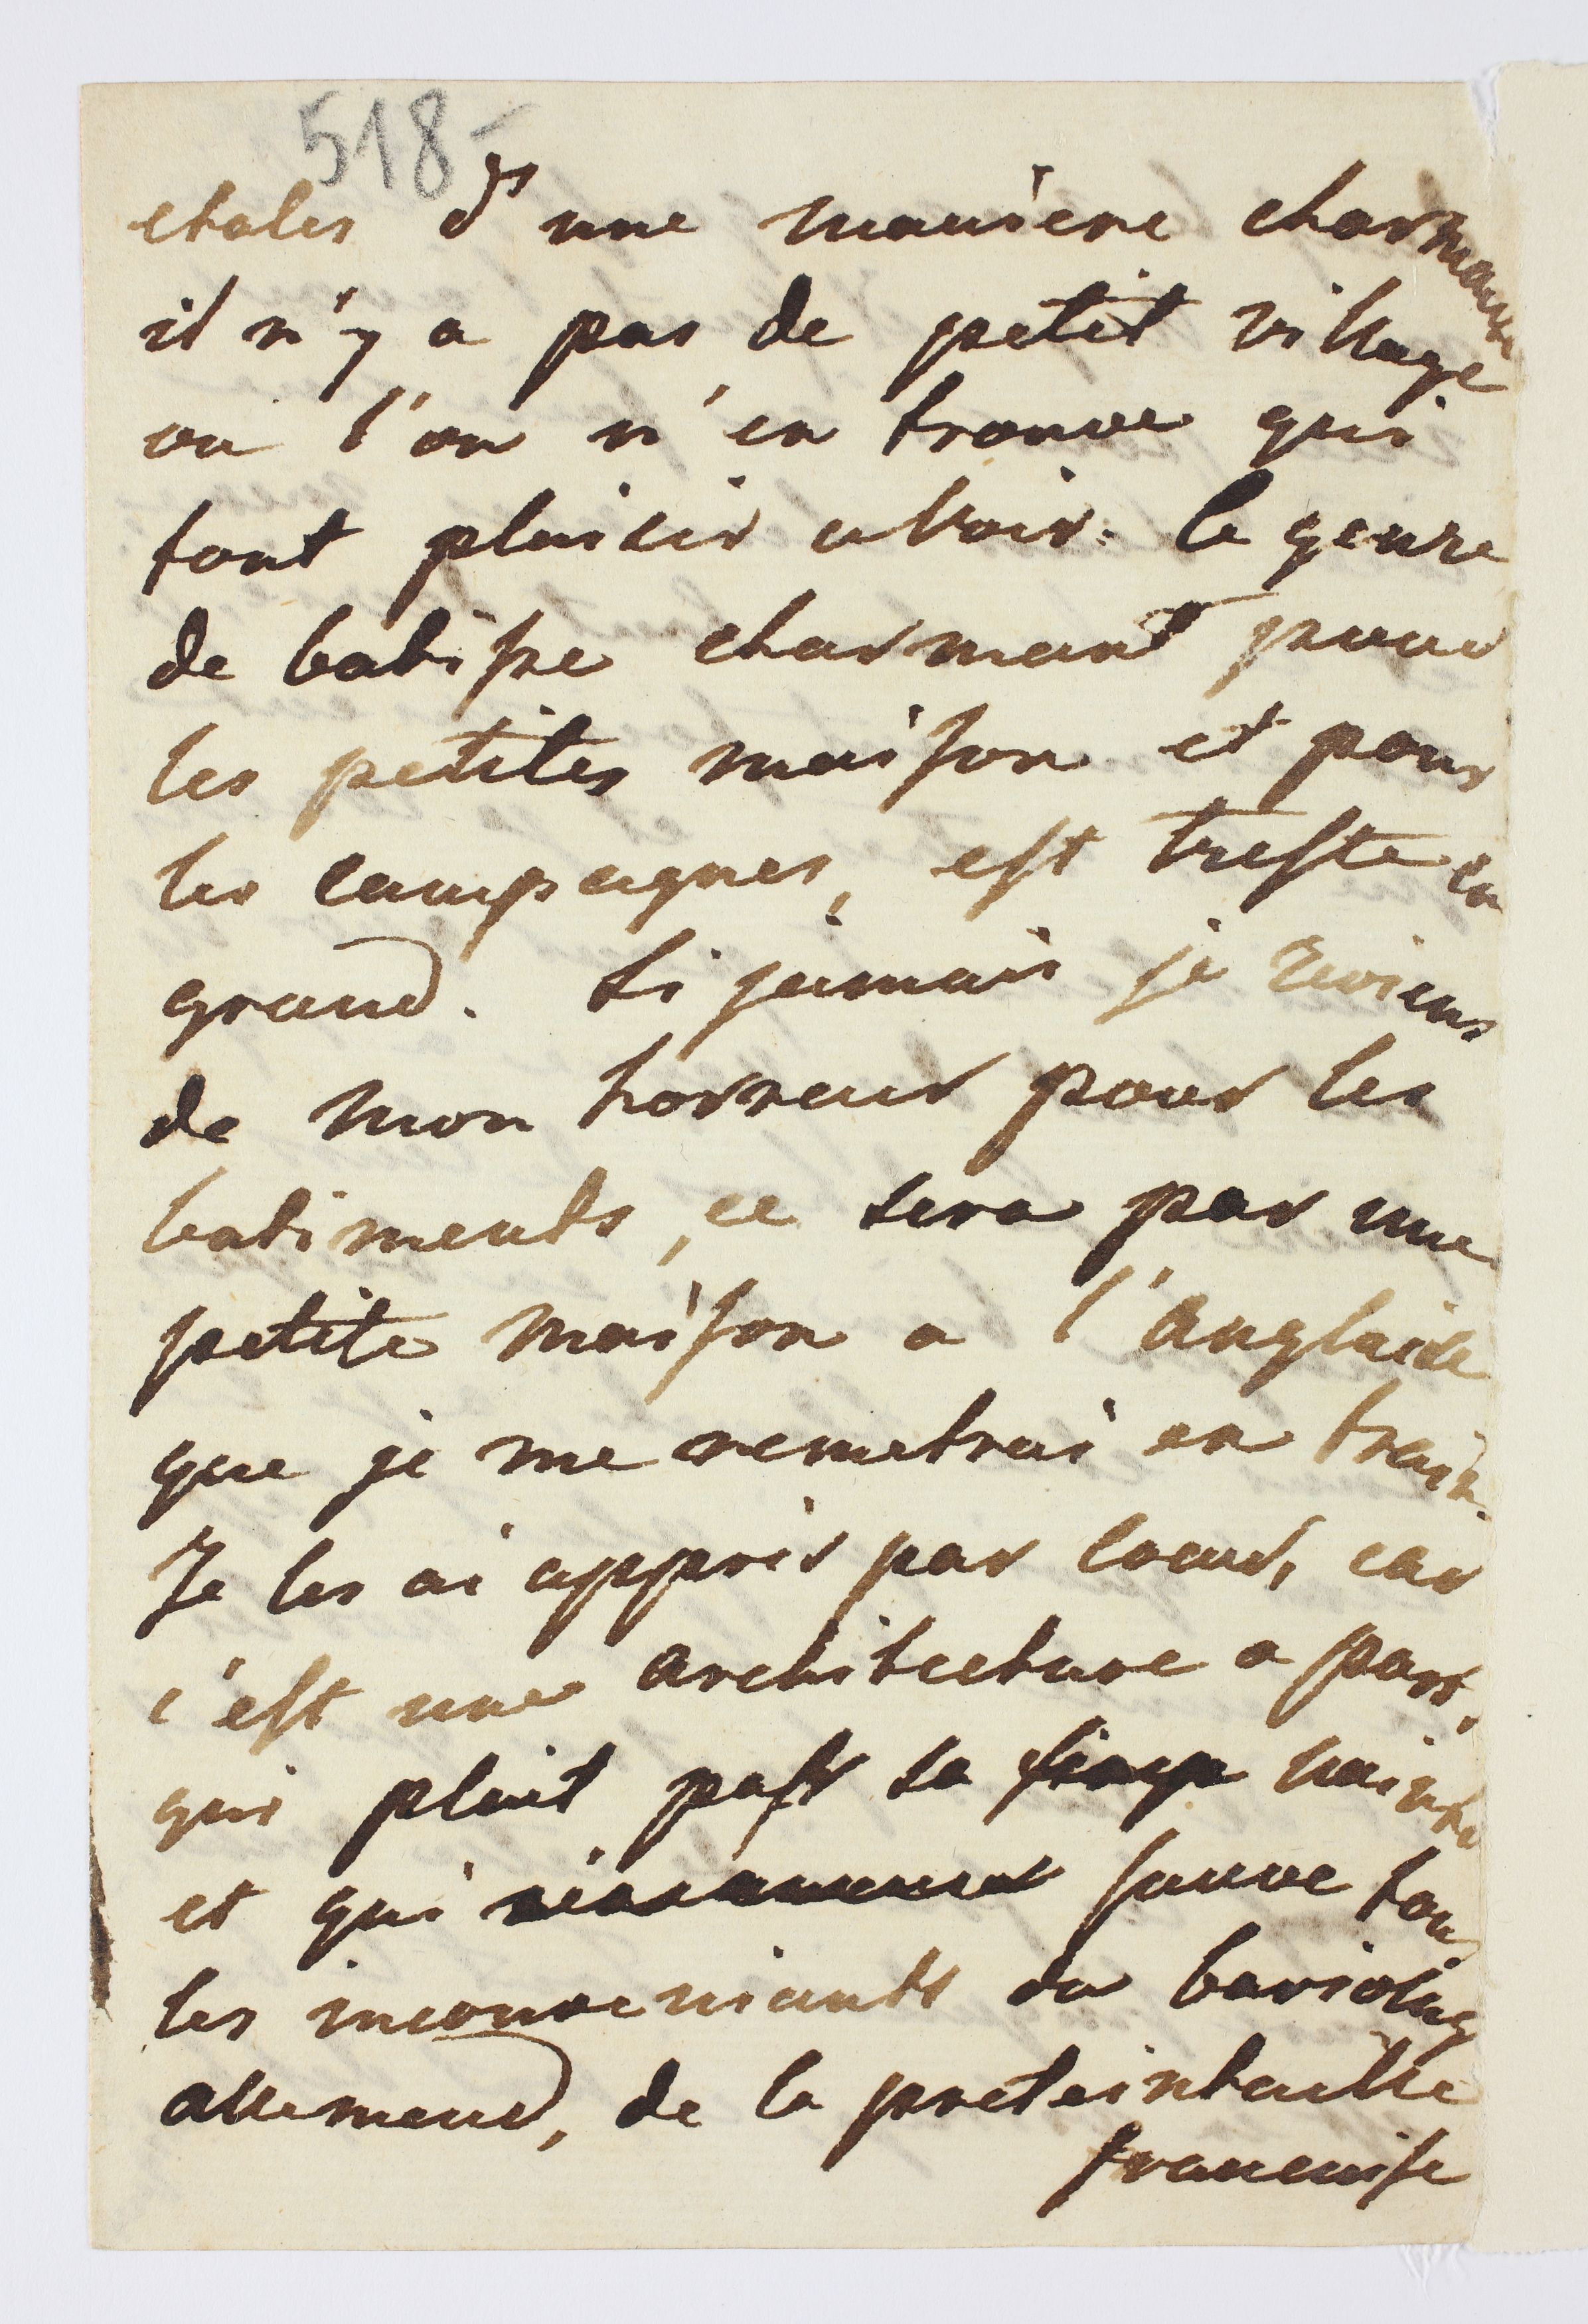 518-
etales d'une maniere charmante
il n'y a pas de petit village
ou l'on n'en trouve qui
font plaisir a voir. le genre
de batisse charmant pour
les petites maison et pour
les campagnes, est treste en
grand. Si jamais je reviens
de mon horreur pour les
batiments, ce sera par une
petite maison a l'Anglaise
que je me remetrai en train.
Je les ai appris par coeur, car
c'est une architecture a part,
qui plait part sa
et qui sauve tous
les inconveniants du bariolag
allemend, de la preteintaille
francaise